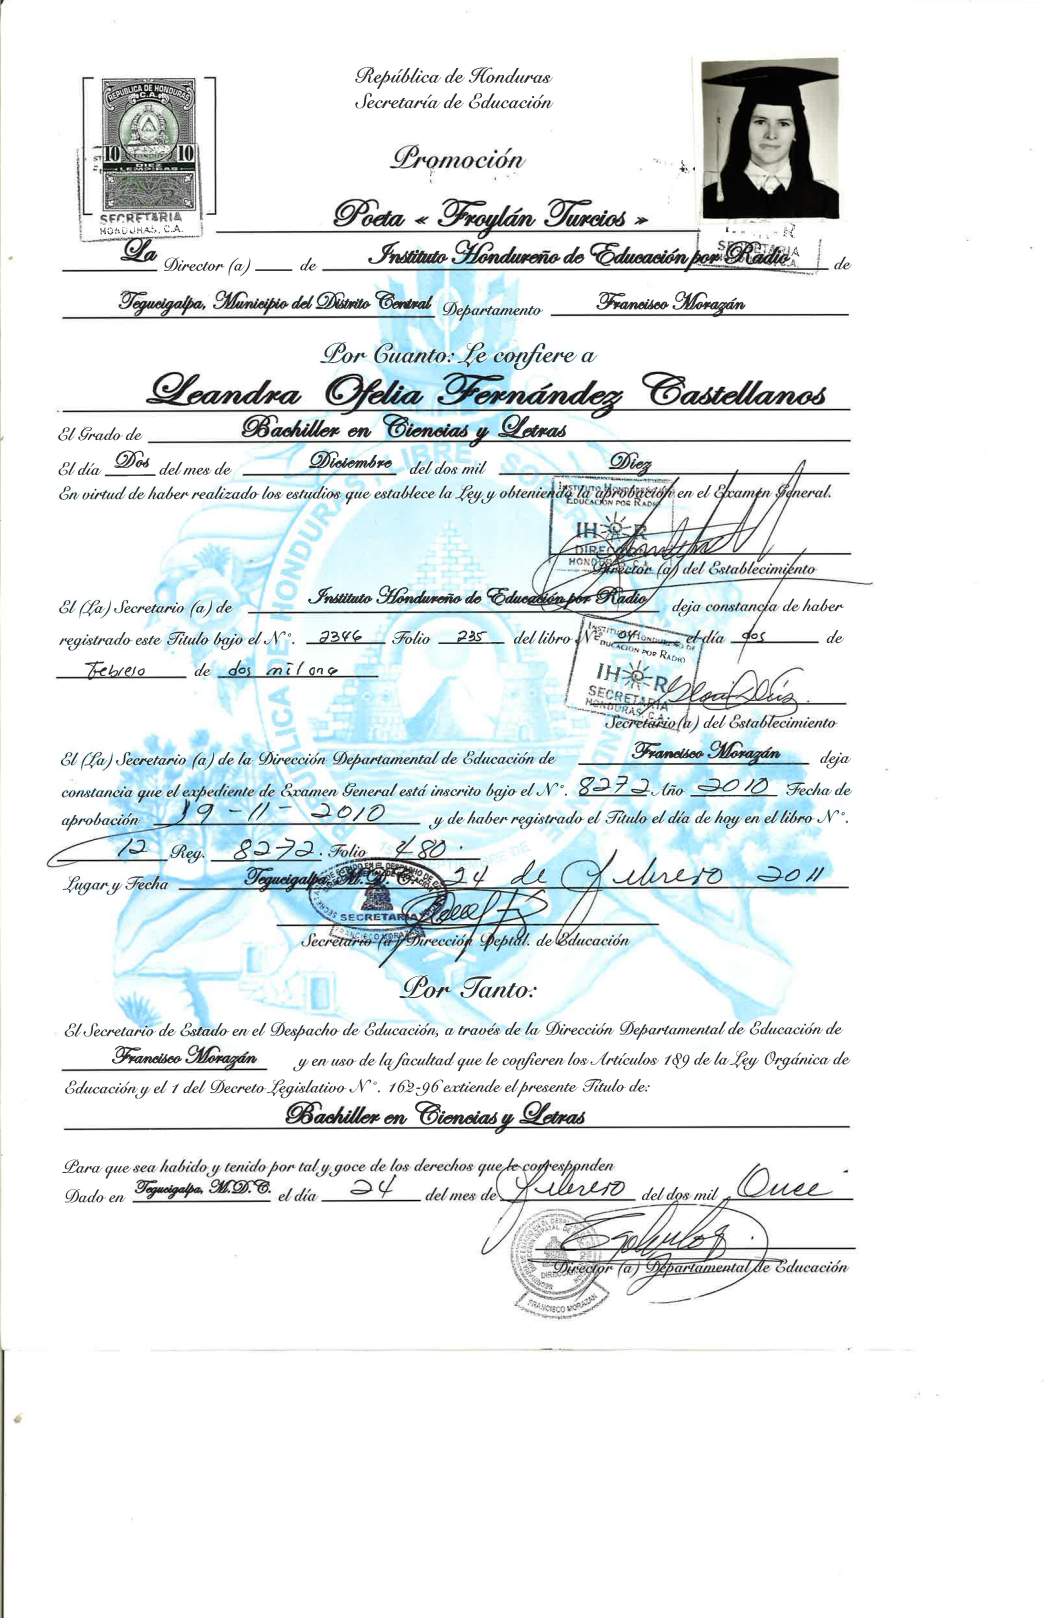 REPUBLICA DE HONDURAS
C.A.
10 10
DIEZ
LEMPIRAS
SECRETARIA
HONDURAS, C.A.
República de Honduras
Secretaría de Educación
Promoción
Poeta « Froylán Turcios »
SECRETARIA
La Director (a) ____ de Instituto Hondureño de Educación por Radio de
Tegucigalpa, Municipio del Distrito Central Departamento Francisco Morazán
Por Cuanto: Le confiere a
Leandra Ofelia Fernández Castellanos
El Grado de Bachiller en Ciencias y Letras
El día Dos del mes de Diciembre del dos mil Diez
En virtud de haber realizado los estudios que establece la Ley y obteniendo la aprobación en el Examen General.
INSTITUTO HONDUREÑO DE
EDUCACION POR RADIO
IH R
DIRECCION
HONDURAS, C.A.
Director (a) del Establecimiento
El (La) Secretario (a) de Instituto Hondureño de Educación por Radio deja constancia de haber
registrado este Título bajo el N°. 2346 Folio 235 del libro N° 04 el día dos de
Febrero de dos mil once
INSTITUTO HONDUREÑO DE
EDUCACION POR RADIO
IH R
SECRETARIA
HONDURAS, C.A.
Secretario (a) del Establecimiento
El (La) Secretario (a) de la Dirección Departamental de Educación de Francisco Morazán deja
constancia que el expediente de Examen General está inscrito bajo el N°. 8272 Año 2010 Fecha de
aprobación 19-11-2010 y de haber registrado el Título el día de hoy en el libro N°.
12 Reg. 8272. Folio 480.
Lugar y Fecha Tegucigalpa, M.D.C. 24 de Febrero 2011
SECRETARIA
FRANCISCO MORAZAN
Secretario (a) Dirección Deptal. de Educación
Por Tanto:
El Secretario de Estado en el Despacho de Educación, a través de la Dirección Departamental de Educación de
Francisco Morazán y en uso de la facultad que le confieren los Artículos 189 de la Ley Orgánica de
Educación y el 1 del Decreto Legislativo N°. 162-96 extiende el presente Título de:
Bachiller en Ciencias y Letras
Para que sea habido y tenido por tal y goce de los derechos que le corresponden
Dado en Tegucigalpa, M.D.C. el día 24 del mes de Febrero del dos mil Once
Director (a) Departamental de Educación
FRANCISCO MORAZAN